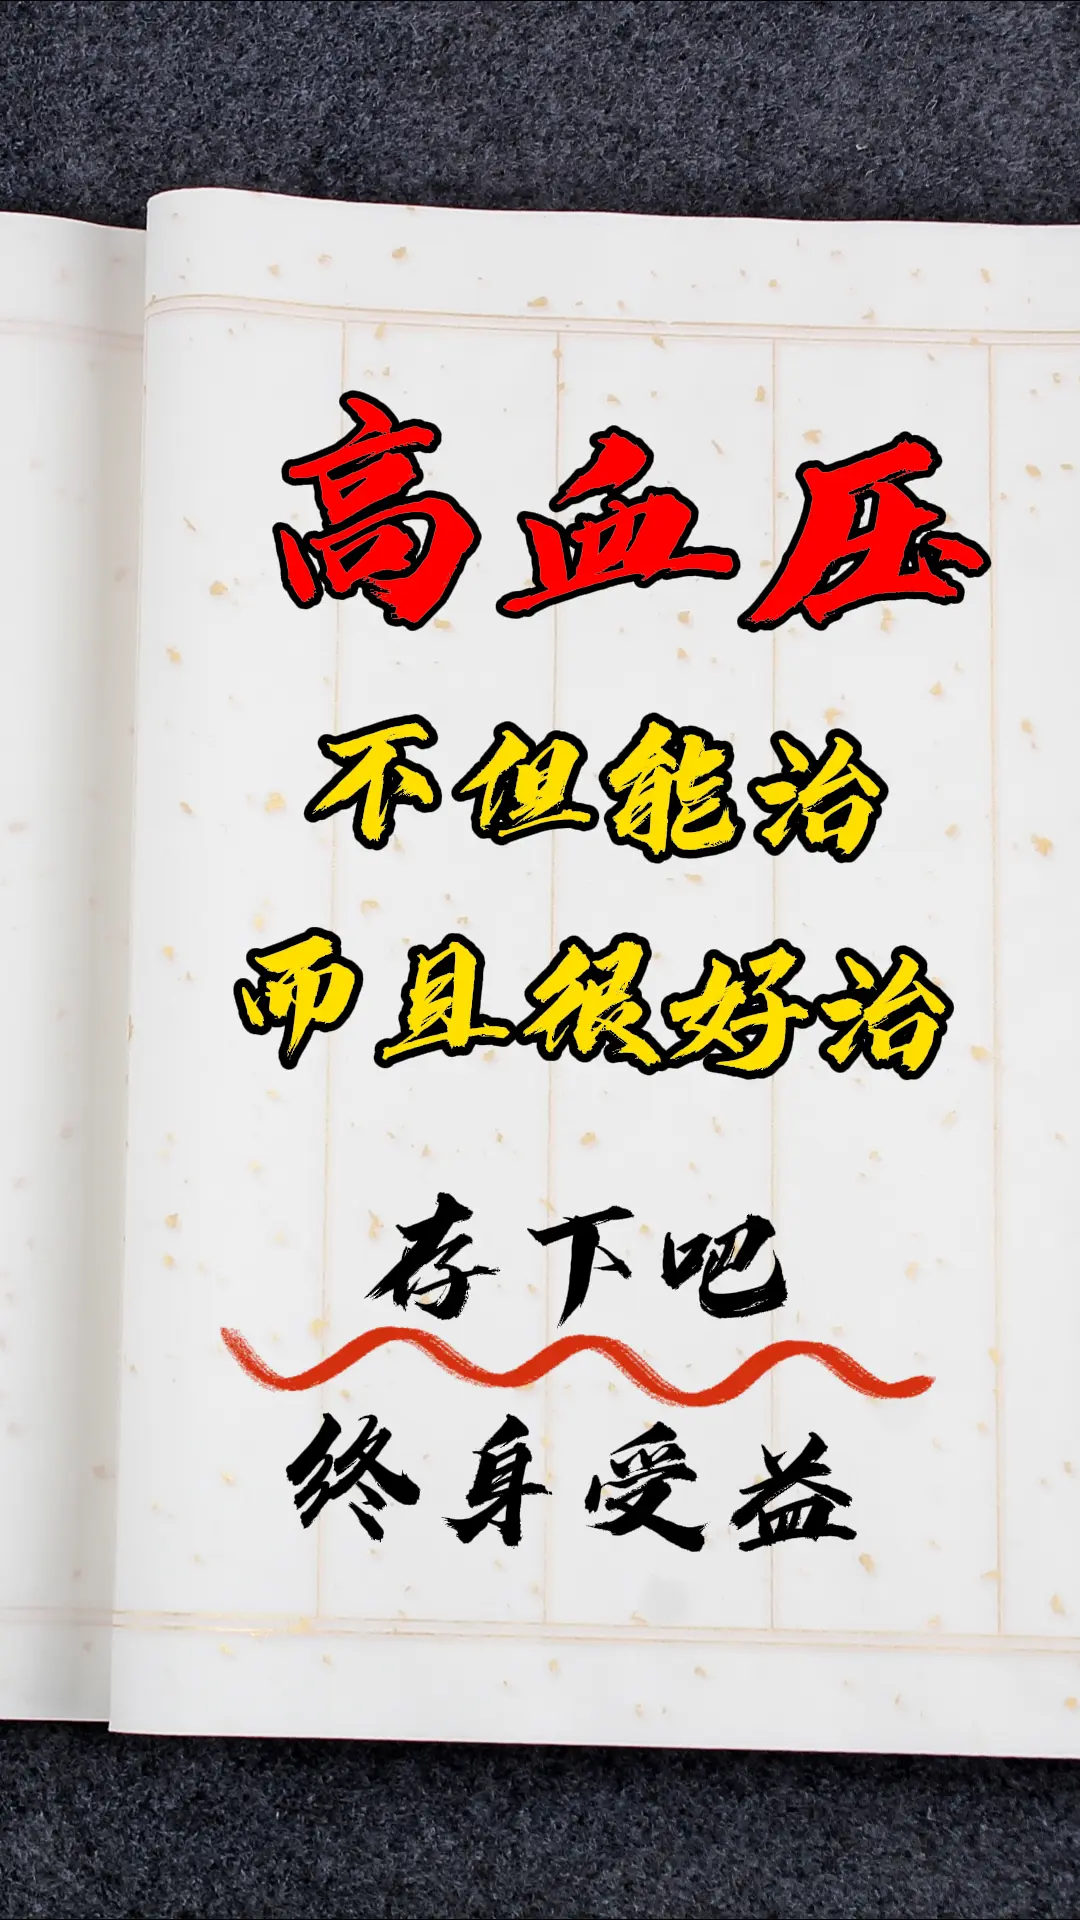 高血压
不但能治
而且很好治
存下吧
终身受益